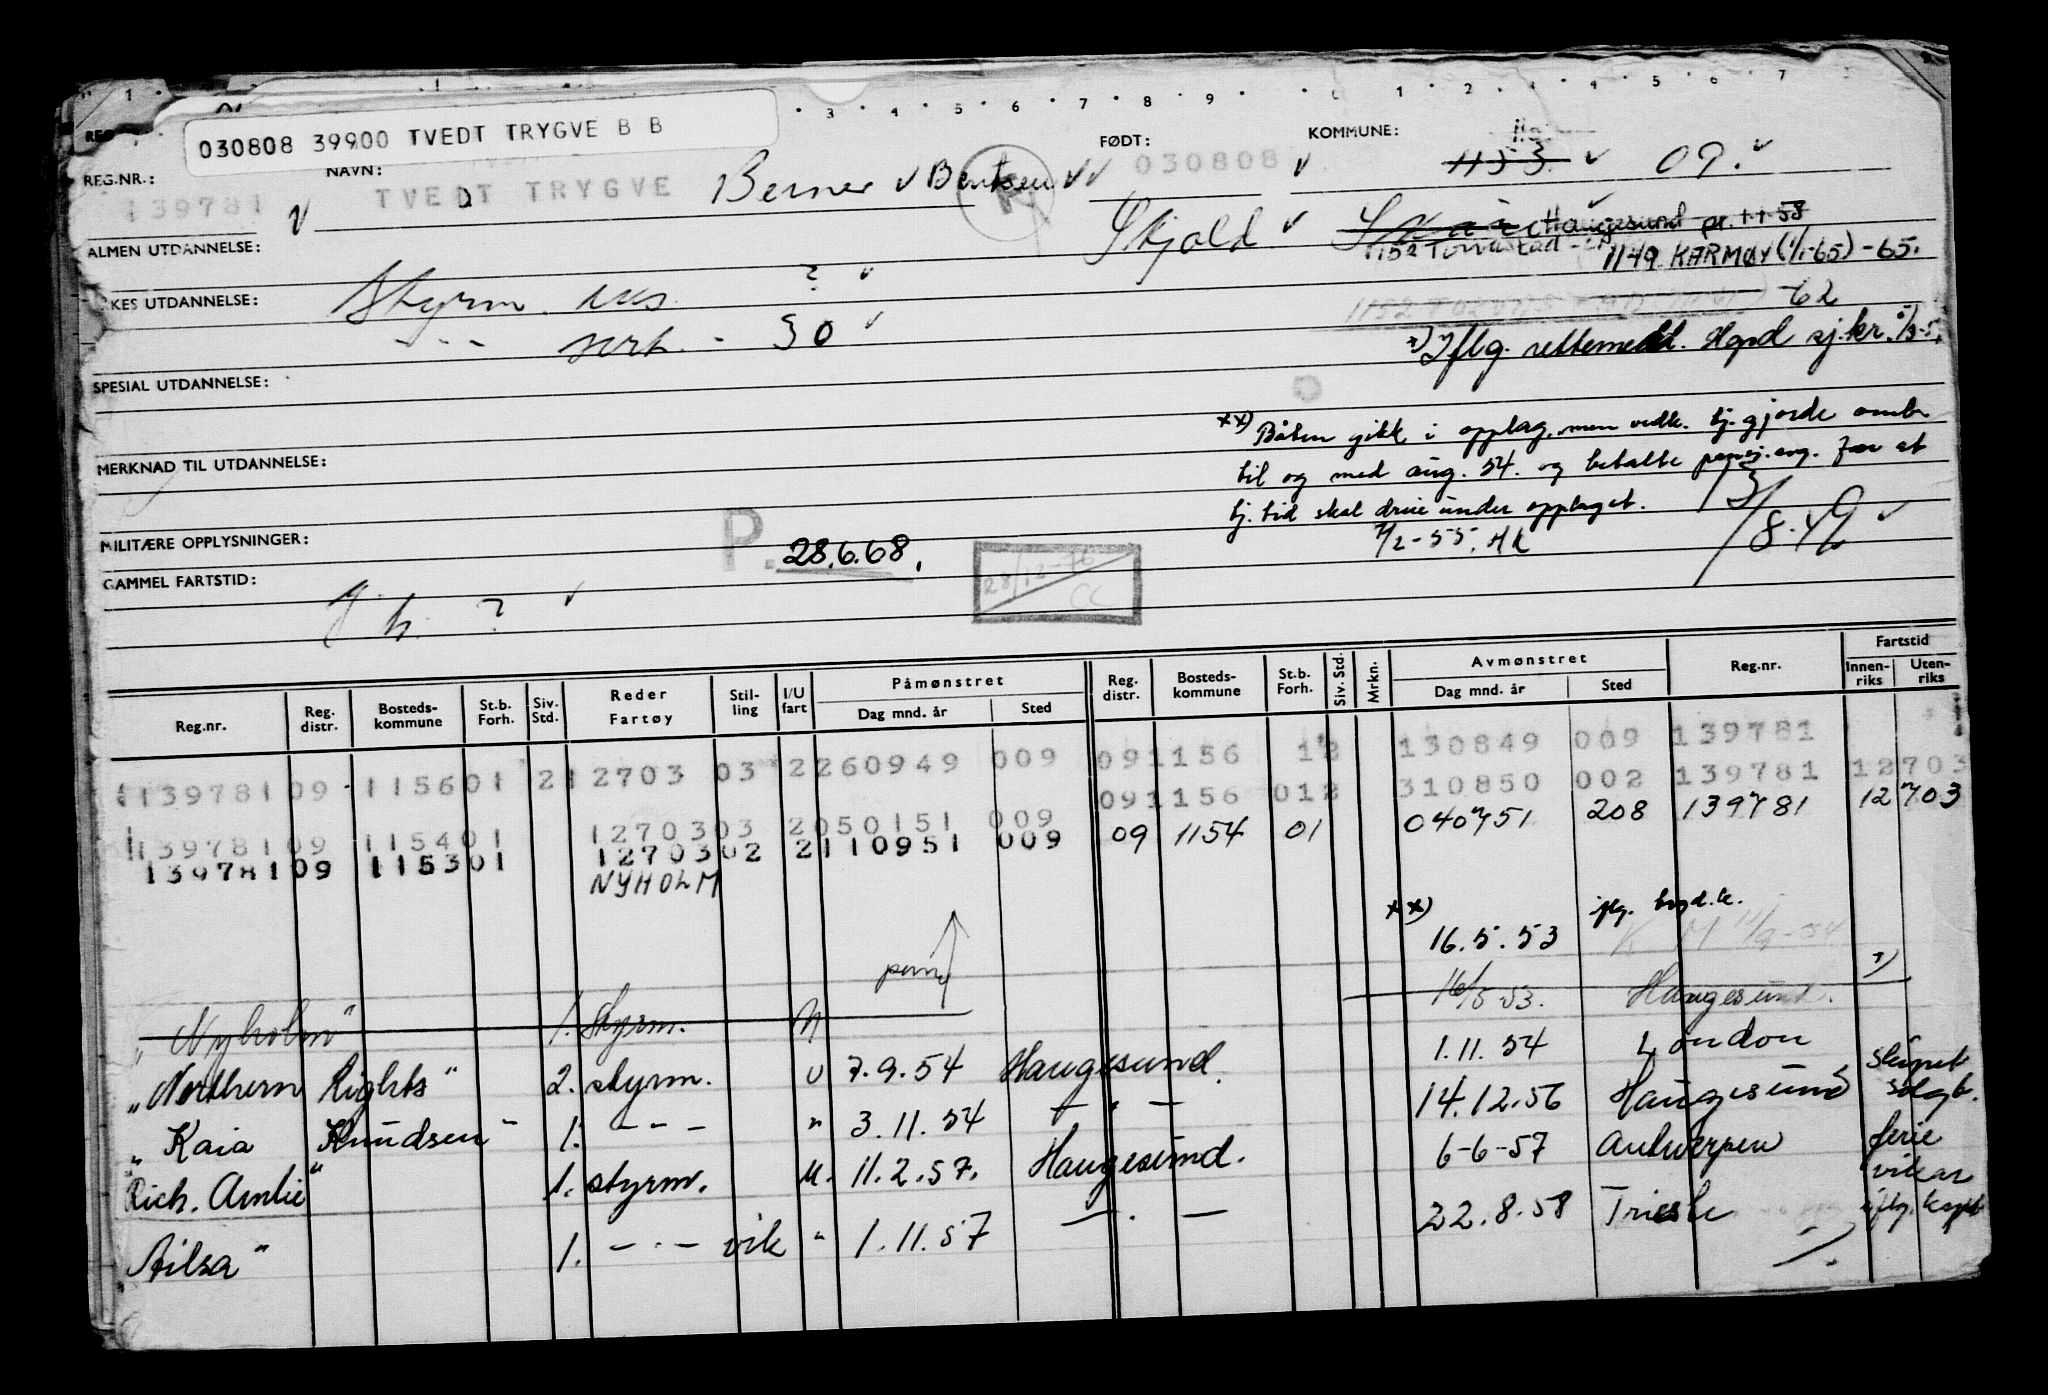 030808 39900 TVEDT TRYGVE B B
REG.NR.:
139781
NAVN:
TVEDT TRYGVE Berner Bentsen
FØDT:
030808
Skjold
KOMMUNE:
1153 09.
Haugesund pr. 1-1-58
1152 Torvastad
1149 KARMØY (1/1-65) -65.
-62
ALMEN UTDANNELSE:
YRKES UTDANNELSE:
Styrm. eks. ?
sert. - 30
x) Iflg. rettemeld. Hgsd sj.kr.
SPESIAL UTDANNELSE:
MERKNAD TIL UTDANNELSE:
xx) Båten gikk i opplag, men vedk. tj.gjorde omb.
til og med aug. 54. og betalte pensj.avg. for at
tj.tid skal drive under opplaget.
7/2-55. HK
13/8.49
MILITÆRE OPPLYSNINGER:
P. 28.6.68.
28/12-76
CC
GAMMEL FARTSTID:
J. h. ?
Påmønstret
Avmønstret
Fartstid
Reg.nr. Reg. distr. Bosteds-kommune St.b. Forh. Siv. Std. Reder Fartøy Stil-ling I/U fart Dag mnd. år Sted Reg. distr. Bosteds-kommune St.b. Forh. Siv. Std. Mrkn. Dag mnd. år Sted Reg.nr. Innen-riks Uten-riks
091156 12 130849 009 139781
139781 09 1156 01 2 12703 03 2 260949 009 091156 012 310850 002 139781 12703
139781 09 1154 01 12703 03 2 050151 009 09 1154 01 040751 208 139781 12703
139781 09 1153 01 12703 02 2 110951 009
NYHOLM
xx) 16.5.53
"Nyholm" 1. Styrm. 16/5 53. Haugesund.
"Northern Lights" 2. styrm. U 7.9.54 Haugesund. 1.11.54 London
"Kaia Knudsen" 1. - - - " 3.11.54 — " — 14.12.56 Haugesund skipet solgt.
"Rich. Amlie" 1. styrm. U. 11.2.57. Haugesund. 6-6-57 Antwerpen ferie vikar
"Ailsa" 1. - " - vik " 1.11.57 — " — 22.8.58 Trieste iflg. kapt